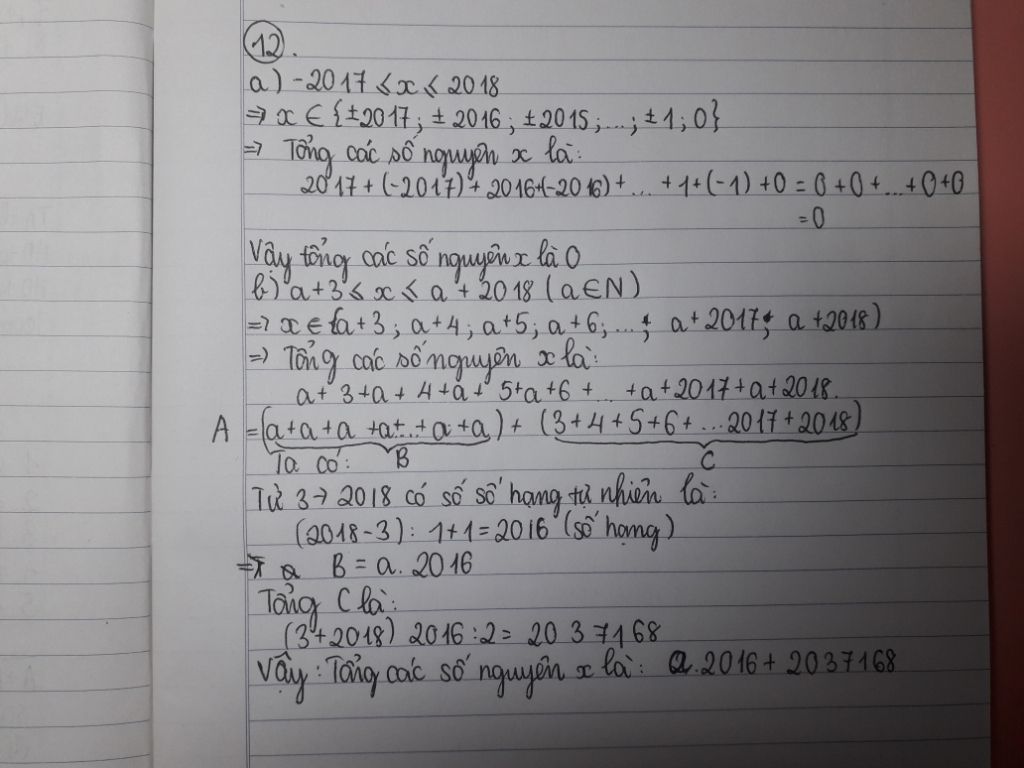 12.
a) -2017 ≤ x ≤ 2018
=> x ∈ {±2017; ±2016; ±2015; ...; ±1; 0}
=> Tổng các số nguyên x là:
2017+(-2017)+2016+(-2016)+ ... +1+(-1)+0 = 0+0+...+0+0
=0
Vậy tổng các số nguyên x là 0
b) a+3 ≤ x ≤ a+2018 (a∈N)
=> x ∈ {a+3; a+4; a+5; a+6; ...; a+2017; a+2018)
=> Tổng các số nguyên x là:
a+3+a+4+a+5+a+6+ ... +a+2017+a+2018.
A =(a+a+a+a+...+a+a) + (3+4+5+6+...2017+2018)
Ta có: B C
Từ 3→2018 có số số hạng tự nhiên là:
(2018-3): 1+1=2016 (số hạng)
=> B = a. 2016
Tổng C là:
(3+2018) 2016:2= 2037168
Vậy: Tổng các số nguyên x là: a.2016+2037168